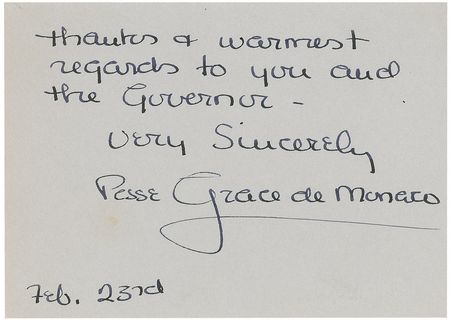 thanks & warmest
regards to you and
the Governor -
Very Sincerely
Pcsse Grace de Monaco
Feb. 23rd